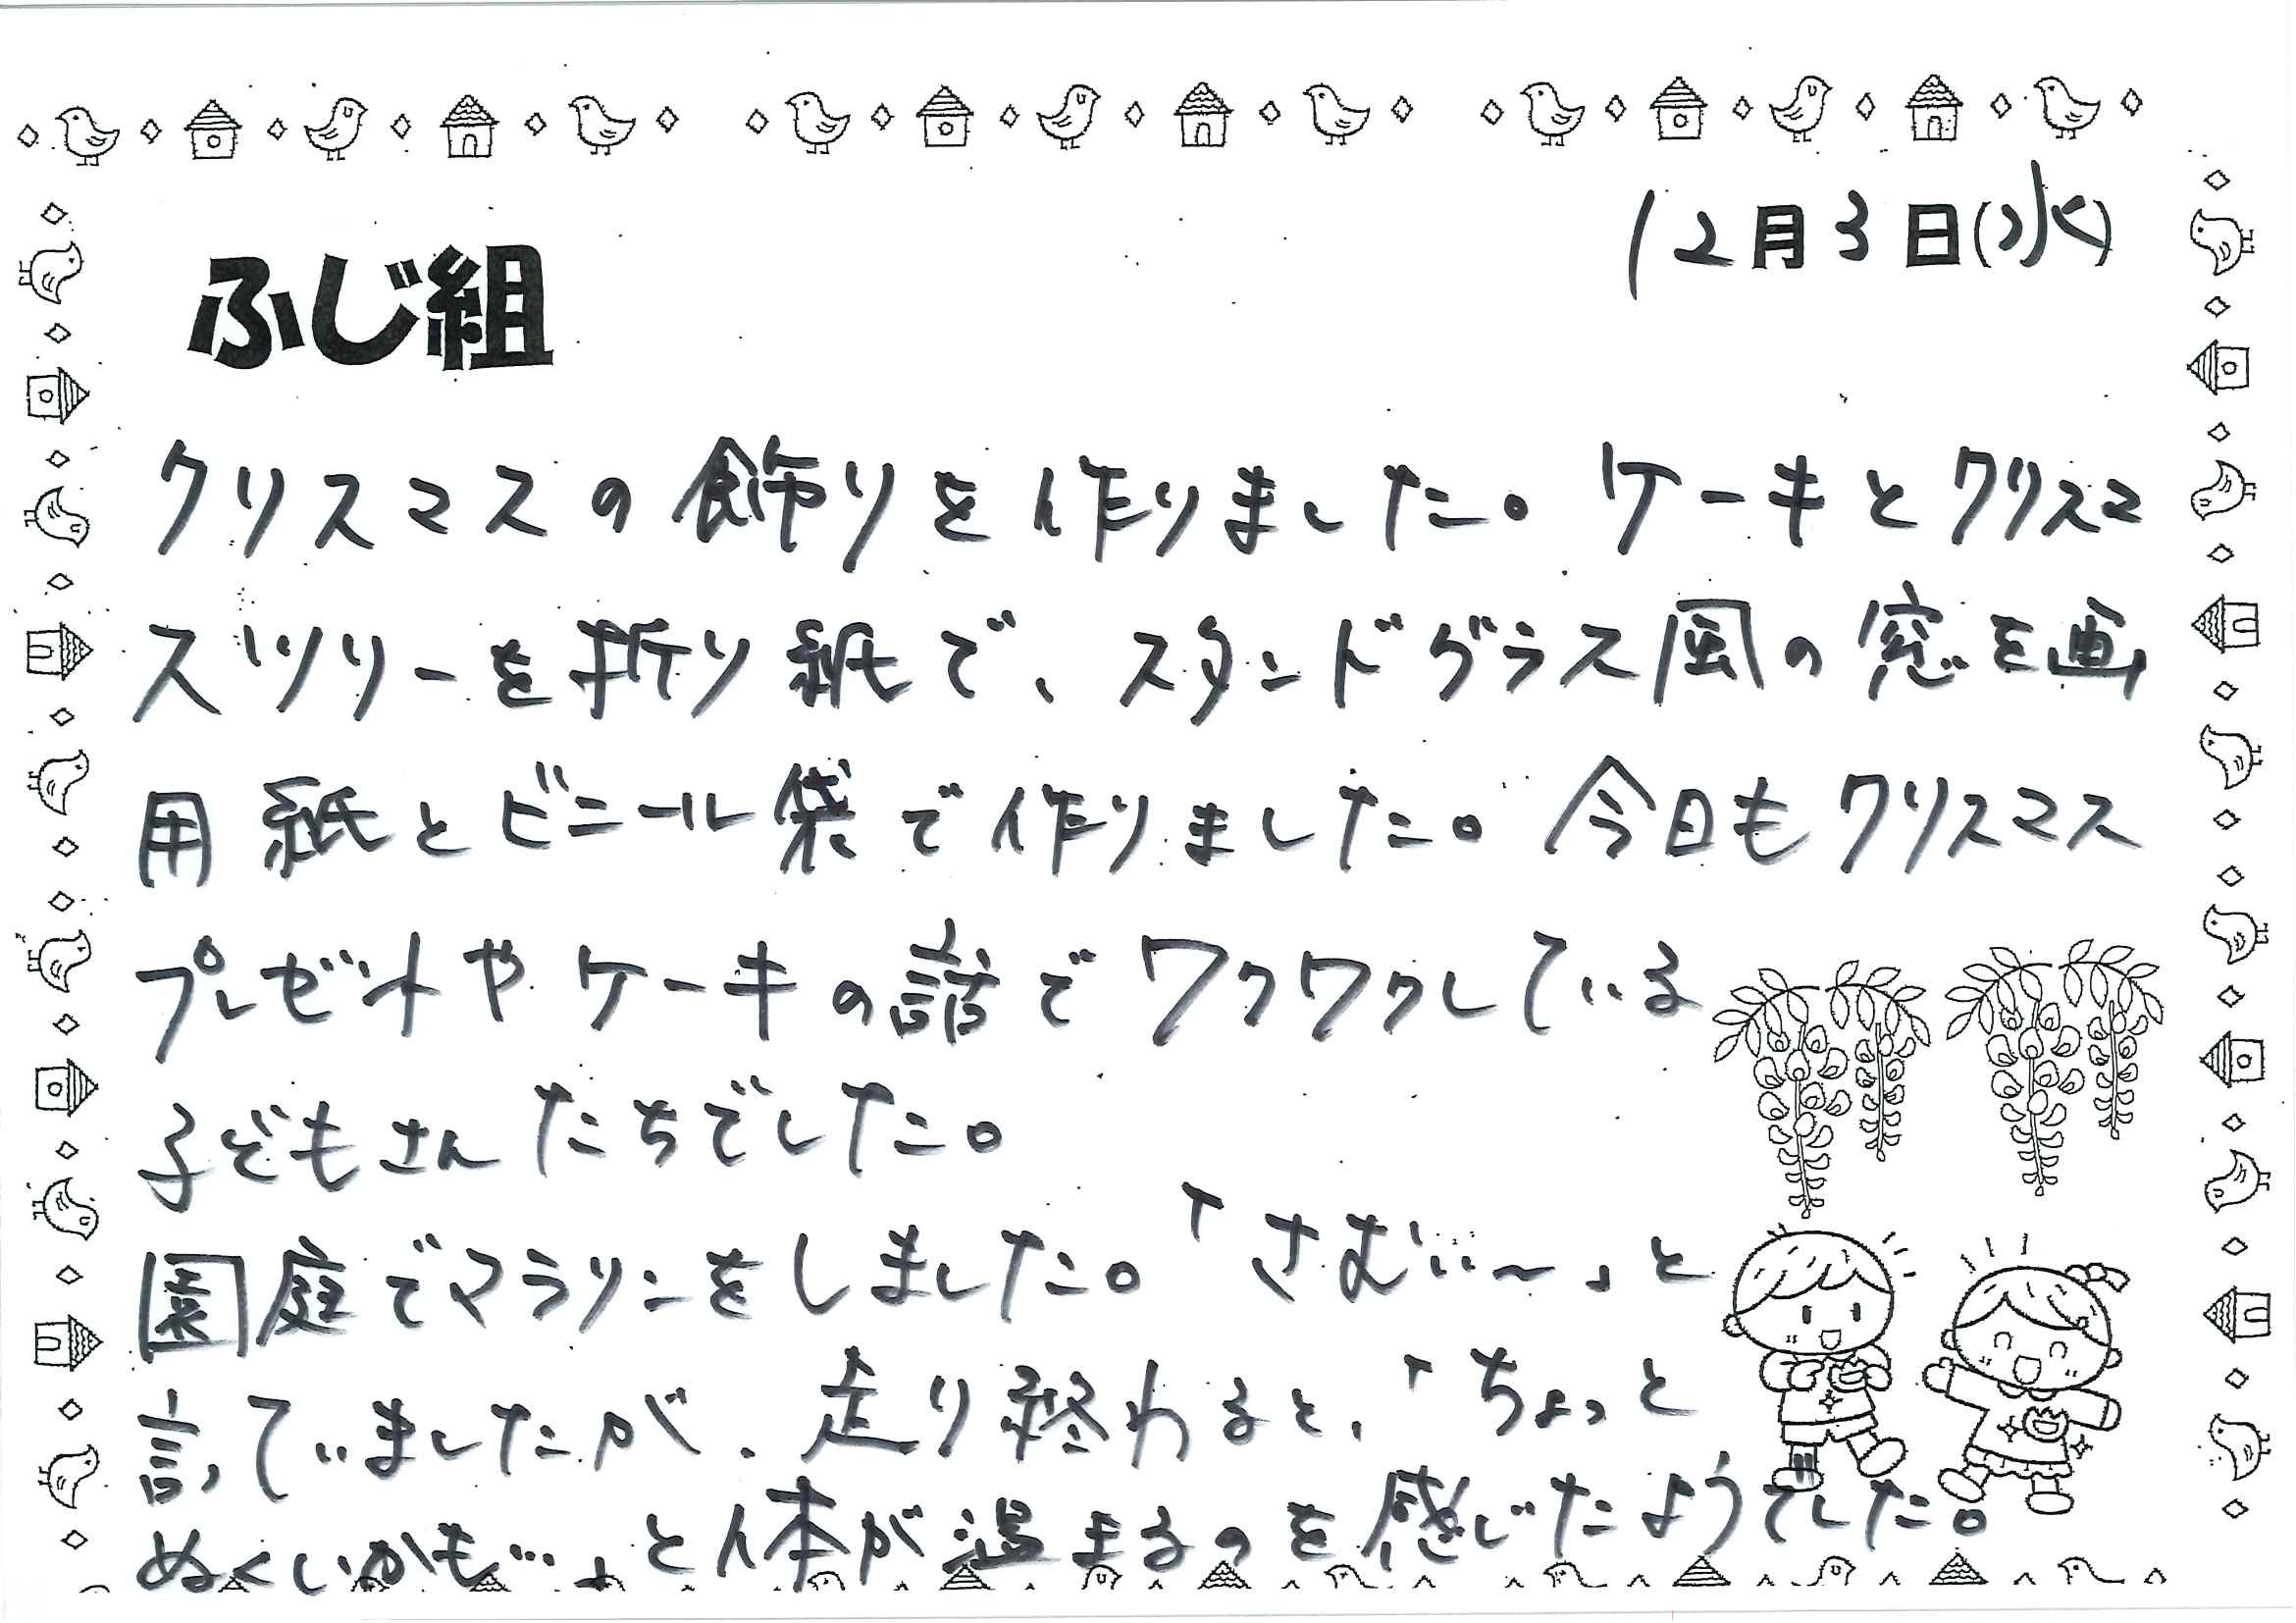 12月3日(水)
ふじ組
クリスマスの飾りを作りました。ケーキとクリスマ
スツリーを折り紙で、スタンドグラス風の窓を画
用紙とビニール袋で作りました。今日もクリスマス
プレゼントやケーキの話でワクワクしている
子どもさんたちでした。
園庭でマラソンをしました。「さむいい〜」と
言っていましたが、走り終わると、「ちょっと
ぬくいかも…」と体が温まるのを感じたようでした。